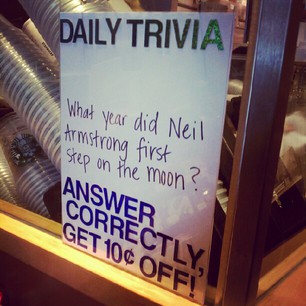 DAILY TRIVIA
What year did Neil
Armstrong first
step on the moon?
ANSWER
CORRECTLY,
GET 10¢ OFF!